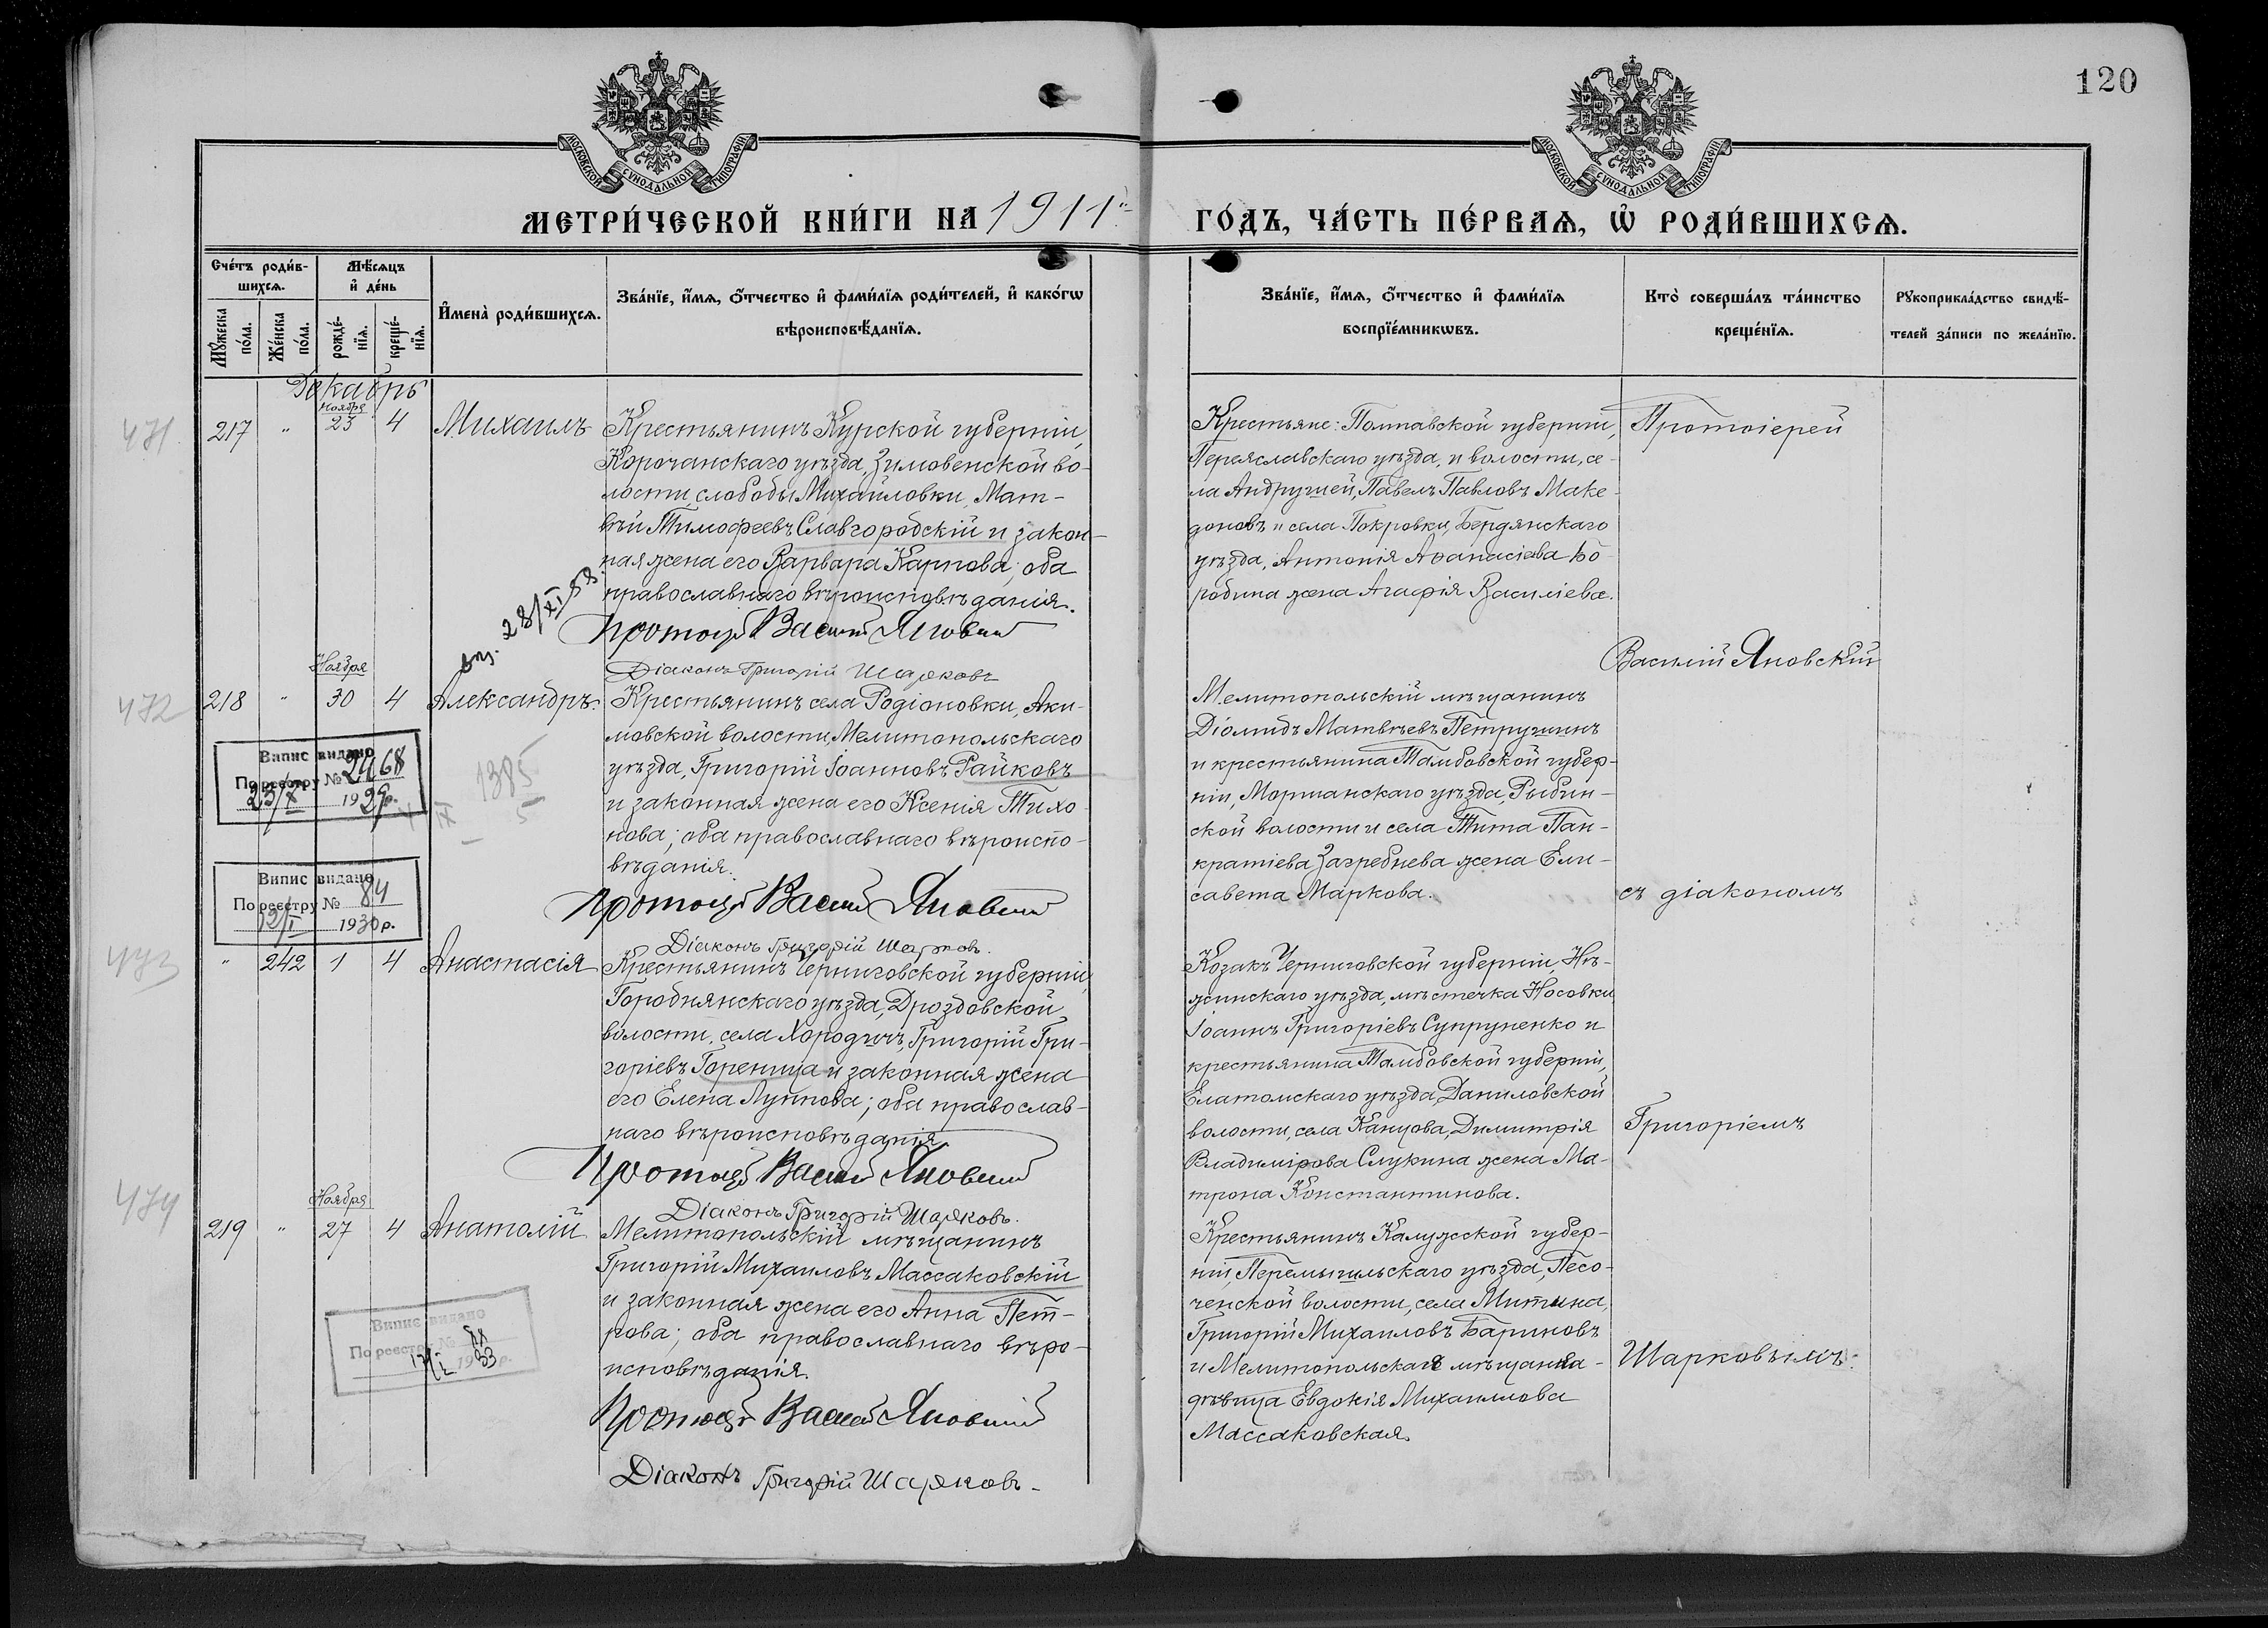 120
МОСКОВСКОЙ СУНОДАЛЬНОЙ ТИПОГРАФІИ
МОСКОВСКОЙ СУНОДАЛЬНОЙ ТИПОГРАФІИ
МЕТРИ́ЧЕСКОЙ КНИ́ГИ НА 1911
ГО́ДЪ, ЧА́СТЬ ПЕ́РВАѦ, Ѡ҆ РОДИ́ВШИХСѦ.
Сче́тъ роди́в-
шихсѧ.
Мѣ́сѧцъ
и҆ де́нь
Мꙋ́жеска по́ла.
Же́нска по́ла.
рожде́-
нїѧ.
креще́-
нїѧ.
И҆мена̀ роди́вшихсѧ.
Зва́нїе, и҆́мѧ, ѻ҆́тчество и҆ фами́лїѧ роди́телей, и҆ како́гѡ
вѣроисповѣ́данїѧ.
Зва́нїе, и҆́мѧ, ѻ҆́тчество и҆ фами́лїѧ
воспрїе́мникѡвъ.
Кто̀ соверша́лъ та́инство
креще́нїѧ.
Рꙋкоприкла́дство свидѣ́-
телей за́писи по жела́нїю.
Декабрь
471
217 " Ноября 23 4 Михаилъ
Крестьянинъ Курской губерніи,
Корочанскаго уѣзда, Зимовенской во-
лости, слободы Михайловки, Мат-
вѣй Тимофеевъ Славгородскій и закон-
ная жена его Варвара Карпова; оба
православнаго вѣроисповѣданія.
28/XI 58
Протоіерей Василій Яновскій
Діаконъ Григорій Шарковъ
Крестьяне: Полтавской губерніи,
Переяславскаго уѣзда, и волости, се-
ла Андрушей, Павелъ Павловъ Маке-
доновъ и села Покровки, Бердянскаго
уѣзда, Антонія Аѳанасіева Бо-
родина жена Агафія Василіева.
Протоіерей
Василій Яновскій
472
218 " Ноября 30 4 Александръ.
Крестьянинъ села Родіоновки, Аки-
мовской волости, Мелитопольскаго
уѣзда, Григорій Іоанновъ Райковъ
и законная жена его Ксенія Тихо-
нова; оба православнаго вѣроиспо-
вѣданія.
Протоіерей Василій Яновскій
Діаконъ Григорій Шарковъ.
Випис видано
По реєстру № 2468
23/X 1929р.
1385
Випис видано
По реєстру № 84
12/I 1930р.
Мелитопольскій мѣщанинъ
Діомидъ Матвѣевъ Петрушинъ
и крестьянина Тамбовской губер-
ніи, Моршанскаго уѣзда, Рыбин-
ской волости и села Тита Пан-
кратіева Загребнева жена Ели-
савета Маркова.
съ діакономъ
473
" 242 1 4 Анастасія
Крестьянинъ Черниговской губерніи,
Городнянскаго уѣзда, Дроздовской
волости, села Хородичъ, Григорій Гри-
горіевъ Гореница и законная жена
его Елена Луппова; оба православ-
наго вѣроисповѣданія
Протоіерей Василій Яновскій
Діаконъ Григорій Шарковъ.
Козакъ Черниговской губерніи, Нѣ-
жинскаго уѣзда, мѣстечка Носовки
Іоаннъ Григоріевъ Супруненко и
крестьянина Тамбовской губерніи,
Елатомскаго уѣзда, Даниловской
волости, села Канцова, Димитрія
Владимірова Слукина жена Ма-
трона Константинова.
Григоріемъ
474
219 " Ноября 27 4 Анатолій
Мелитопольскій мѣщанинъ
Григорій Михаиловъ Массаковскій
и законная жена его Анна Пет-
рова; оба православнаго вѣро-
исповѣданія.
Протоіерей Василій Яновскій
Діаконъ Григорій Шарковъ.
Випис видано
По реєстру №
1933 р.
Крестьянинъ Калужской губер-
ніи, Перемышльскаго уѣзда, Песо-
ченской волости, села Митина,
Григорій Михаиловъ Бариновъ
и Мелитопольская мѣщанка-
дѣвица Евдокія Михаилова
Массаковская.
Шарковымъ.